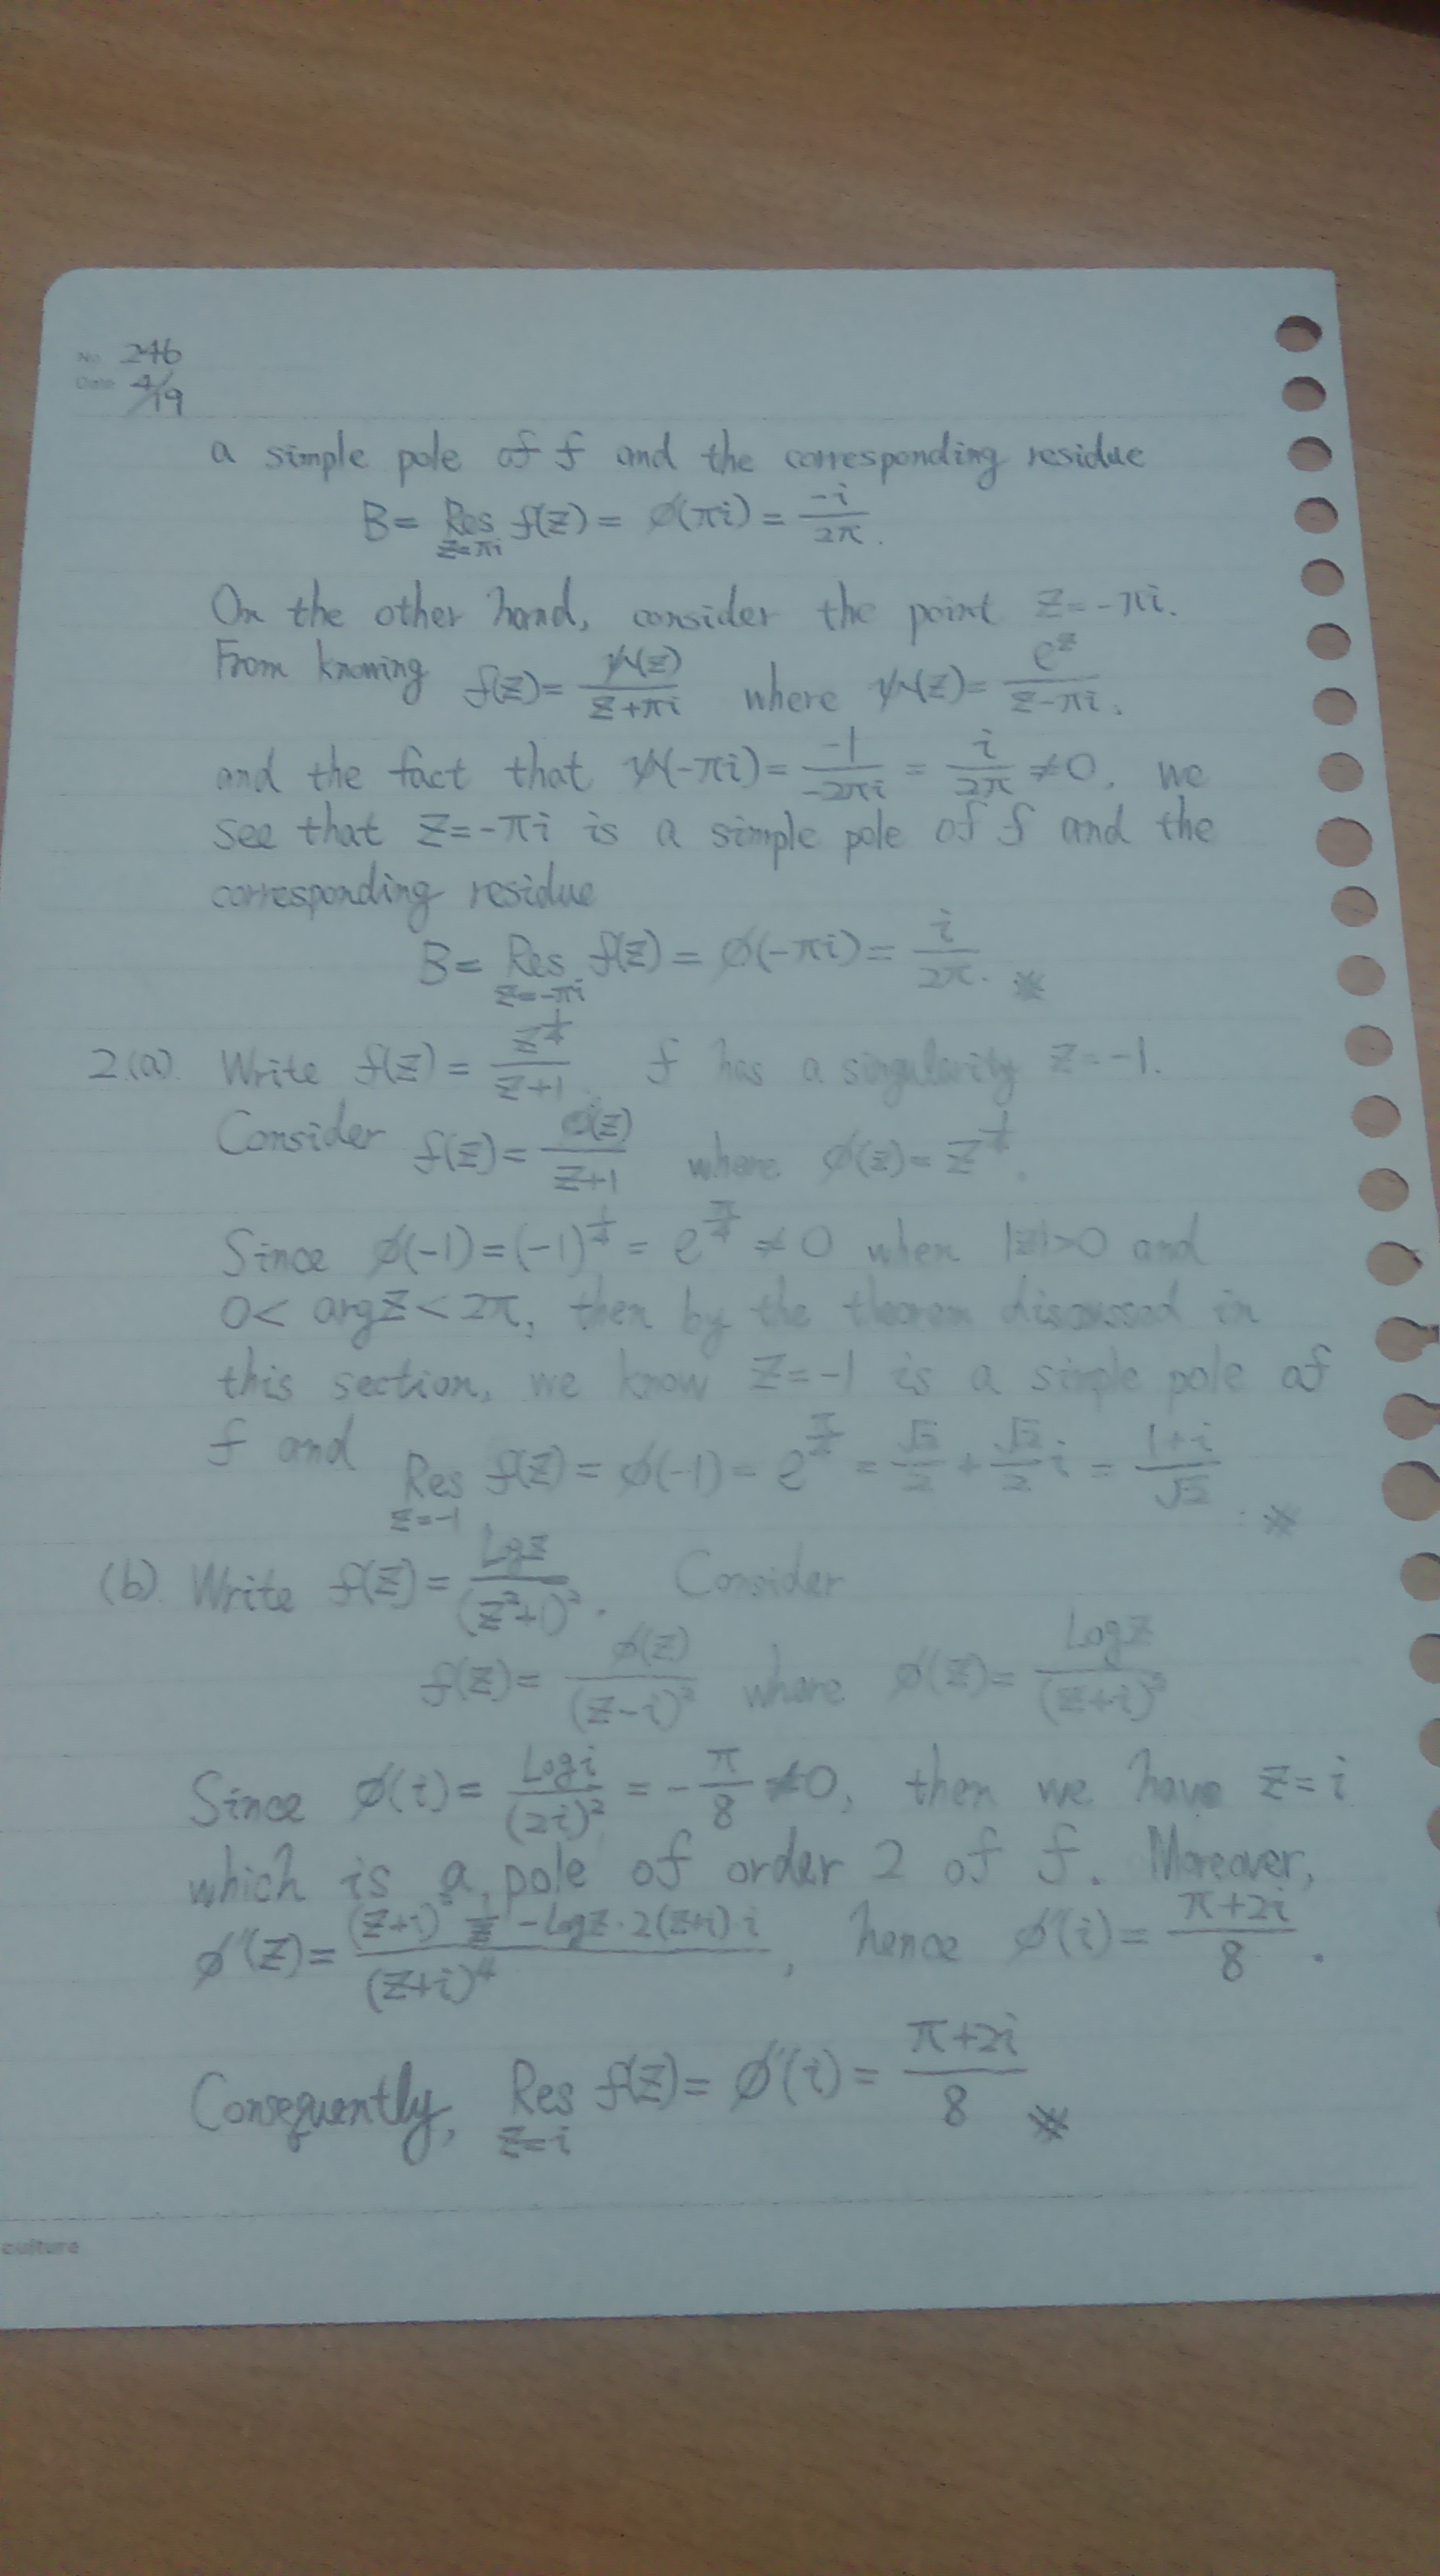 No. 246
Date 4/19
a simple pole of f and the corresponding residue
B = Res_{z=πi} f(z) = ϕ(πi) = -i/2π.
On the other hand, consider the point z = -πi.
From knowing f(z) = ψ(z)/(z+πi) where ψ(z) = e^z/(z-πi).
and the fact that ψ(-πi) = -1/(-2πi) = i/2π ≠ 0, we
see that z = -πi is a simple pole of f and the
corresponding residue
B = Res_{z=-πi} f(z) = ϕ(-πi) = i/2π. ※
2.(a). Write f(z) = z^{1/4}/(z+1). f has a singularity z = -1.
Consider f(z) = ϕ(z)/(z+1) where ϕ(z) = z^{1/4}.
Since ϕ(-1) = (-1)^{1/4} = e^{π/4} ≠ 0 when |z|>0 and
0 < arg z < 2π, then by the theorem discussed in
this section, we know z = -1 is a simple pole of
f and Res_{z=-1} f(z) = ϕ(-1) = e^{π/4} = √2/2 + √2/2 i = (1+i)/√2. ※
(b). Write f(z) = Log z/(z²+1)². Consider
f(z) = ϕ(z)/(z-i)² where ϕ(z) = Log z/(z+i)²
Since ϕ(i) = Log i/(2i)² = -π/8 ≠ 0, then we have z = i
which is a pole of order 2 of f. Moreover,
ϕ'(z) = ((z+i)² 1/z - Log z · 2(z+i) · i)/(z+i)⁴, hence ϕ'(i) = (π+2i)/8.
Consequently, Res_{z=i} f(z) = ϕ'(i) = (π+2i)/8 ※
culture